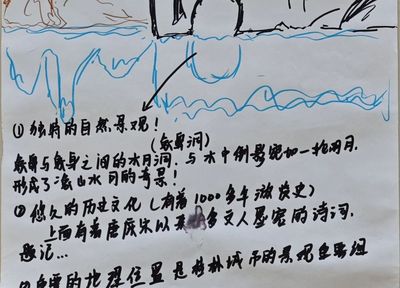 ① 独特的自然景观！
(象鼻洞)
象鼻与象身之间的水月洞，与水中倒影宛如一轮明月，
形成了漓山水月的奇景！
② 悠久的历史文化（有着1000多年旅发史）
上面有着唐庞宋以来多文人墨客的诗词，
题记...
的地理位置 是桂林城市的景观